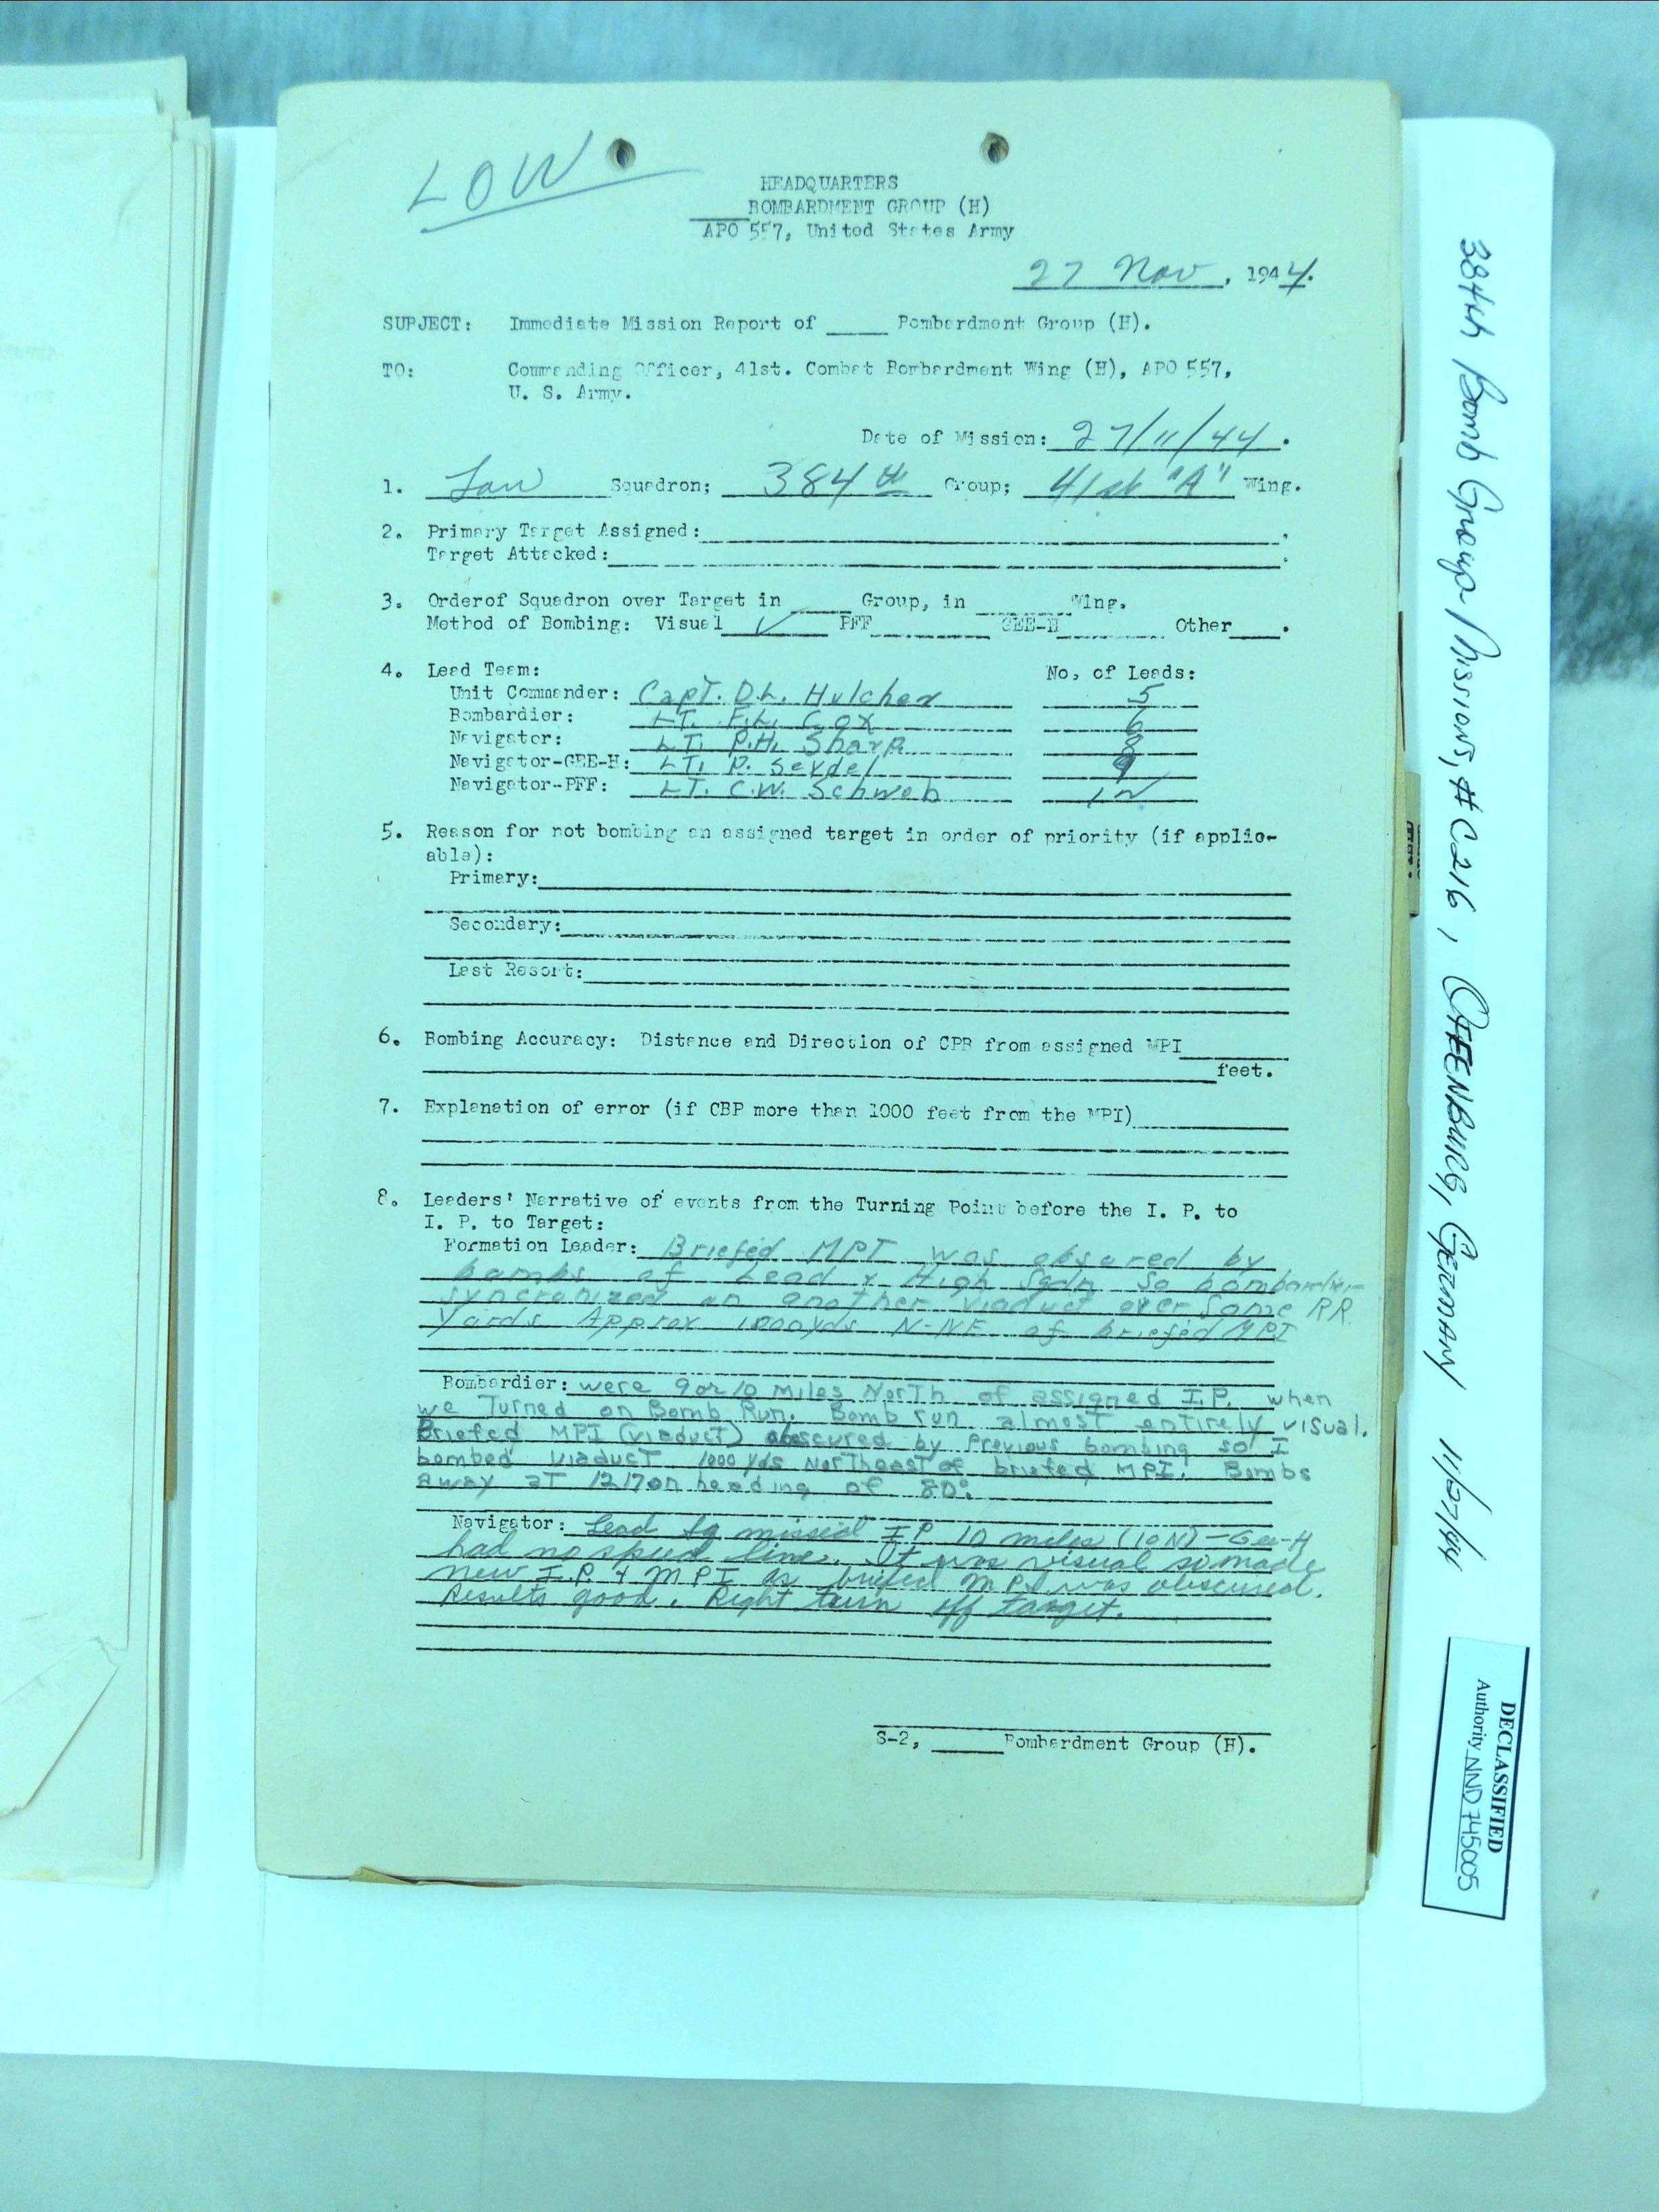 LOW
HEADQUARTERS
BOMBARDMENT GROUP (H)
APO 557, United States Army
27 Nov, 1944.
SUBJECT: Immediate Mission Report of Bombardment Group (H).
TO: Commanding Officer, 41st. Combat Bombardment Wing (H), APO 557,
U. S. Army.
Date of Mission: 27/11/44.
1. Low Squadron; 384th Group; 41st "A" Wing.
2. Primary Target Assigned:
Target Attacked:
3. Orderof Squadron over Target in Group, in Wing.
Method of Bombing: Visual ✓ PFF GEE-H Other .
4. Lead Team: No. of Leads:
Unit Commander: Capt. D.L. Hulcher 5
Bombardier: LT. F.L. Cox 6
Navigator: LT. P.H. Sharp 8
Navigator-GEE-H: LT. P. Seydel 9
Navigator-PFF: LT. C.W. Schwob
5. Reason for not bombing an assigned target in order of priority (if applic-
able):
Primary:
Secondary:
Last Resort:
6. Bombing Accuracy: Distance and Direction of CPB from assigned MPI
feet.
7. Explanation of error (if CBP more than 1000 feet from the MPI)
8. Leaders' Narrative of events from the Turning Point before the I. P. to
I. P. to Target:
Formation Leader: Briefed MPI was obscured by
bombs of Lead & High Sqdn so bombardier
syncronized on another viaduct over same RR
Yards Approx 1000yds N-NE of briefed MPI
Bombardier: were 9 or 10 miles North of assigned I.P. when
we Turned on Bomb Run. Bomb run almost entirely visual.
Briefed MPI (viaduct) obscured by Previous bombing so I
bombed viaduct 1000 yds Northeast of briefed MPI. Bombs
away at 1217 on heading of 80°.
Navigator: Lead missed I.P. 10 miles (10 N) - Gee-H
had no speed line. It was visual so made
new I.P. & MPI as briefed MPI was obscured.
Results good. Right turn off target.
S-2, Bombardment Group (H).
384th Bomb Group Missions, #C216, OFFENBURG, GERMANY 11/27/44
DECLASSIFIED
Authority NND 745005